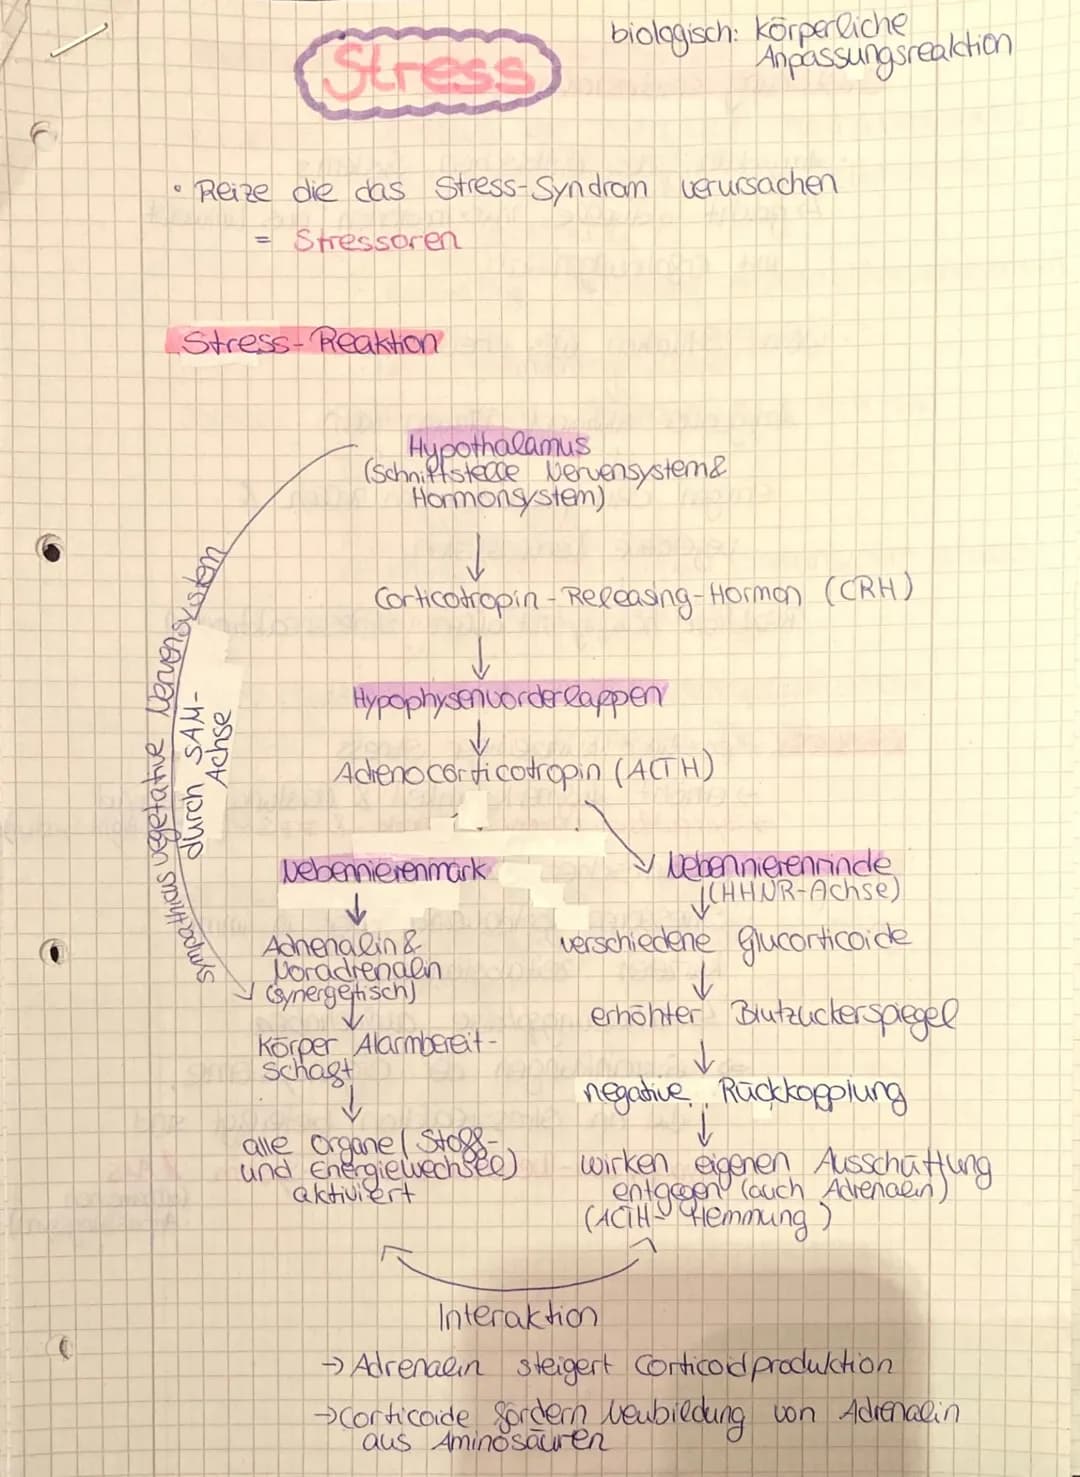 Stress
biologisch: körperliche
Anpassungsreaktion
• Reize die das Stress-Syndrom verursachen
= Stressoren
Stress-Reaktion
Hypothalamus
(Schnittstelle Nervensystem &
Hormonsystem)
↓
Corticotropin-Releasing-Hormon (CRH)
↓
Hypophysenvorderlappen
↓
Adrenocorticotropin (ACTH)
sympathisus vegetative Nervensystem
durch SAM-
Achse
Nebennierenmark
↓
Adrenalin &
Noradrenalin
(synergetisch)
↓
Körper Alarmbereit-
schaft
↓
alle Organe (Stoff-
und Energiewechsel)
aktiviert
Nebennierenrinde
↓ (HHNR-Achse)
verschiedene Glucorticoide
↓
erhöhter Blutzuckerspiegel
↓
negative Rückkopplung
↓
wirken eigenen Ausschüttung
entgegen (auch Adrenalin)
(ACTH-Hemmung)
Interaktion
→ Adrenalin steigert Corticoidproduktion
→ Corticoide fördern Neubildung von Adrenalin
aus Aminosäuren